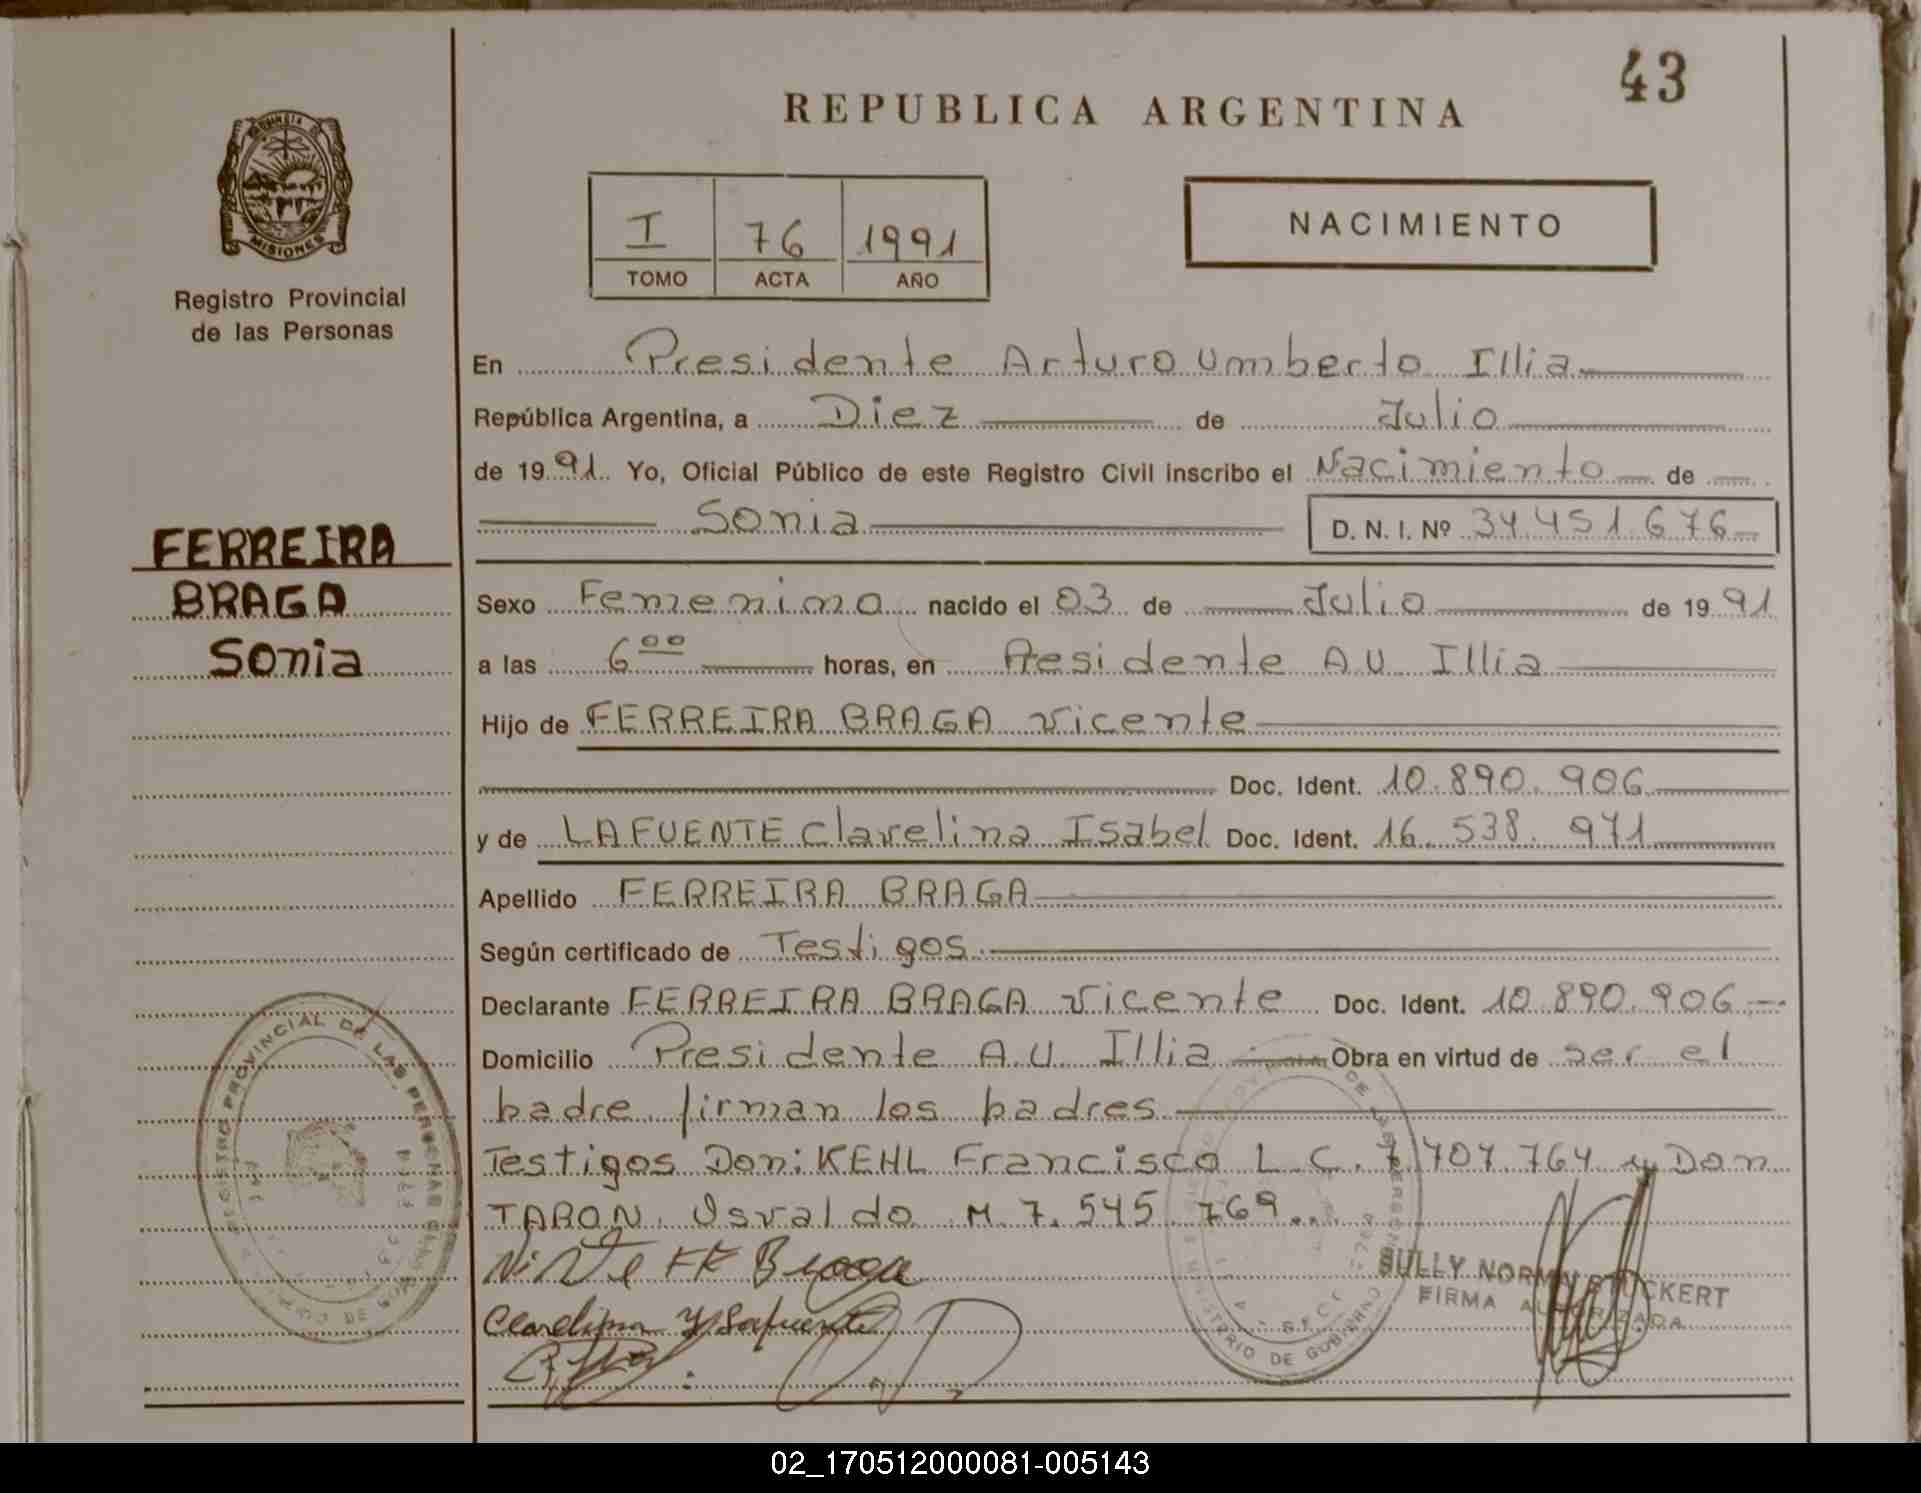 43
REPUBLICA ARGENTINA
PROVINCIA DE MISIONES
Registro Provincial
de las Personas
I 76 1991
TOMO ACTA AÑO
NACIMIENTO
FERREIRA
BRAGA
Sonia
En Presidente Arturo Umberto Illia
República Argentina, a Diez de Julio
de 1991. Yo, Oficial Público de este Registro Civil inscribo el Nacimiento de
Sonia D. N. I. Nº 34.451.676
Sexo Femenino nacido el 03 de Julio de 1991
a las 6 00 horas, en Presidente A.U. Illia
Hijo de FERREIRA BRAGA Vicente
Doc. Ident. 10.890.906
y de LAFUENTE Clarelina Isabel Doc. Ident. 16.538.971
Apellido FERREIRA BRAGA
Según certificado de Testigos
Declarante FERREIRA BRAGA Vicente Doc. Ident. 10.890.906
Domicilio Presidente A.U. Illia Obra en virtud de ser el
padre, firman los padres
Testigos Don: KEHL Francisco L.C. 7.707.764 y Don
TARON, Osvaldo M 7.545.769
REGISTRO PROVINCIAL DE LAS PERSONAS
MINISTERIO DE GOBIERNO
SULLY NORMA STOCKERT
FIRMA AUTORIZADA
02_170512000081-005143